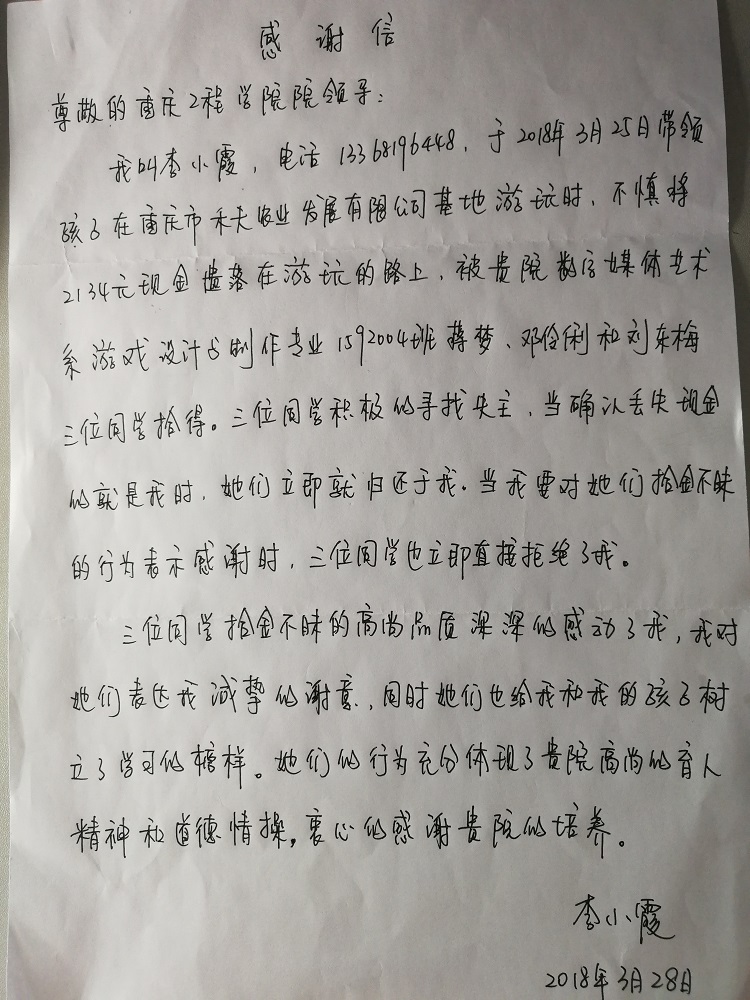 感谢信
尊敬的重庆工程学院院领导：
我叫李小霞，电话13368196448，于2018年3月25日带领
孩子在重庆市禾夫农业发展有限公司基地游玩时，不慎将
2134元现金遗落在游玩的路上，被贵院数字媒体艺术
系游戏设计与制作专业1592004班蒋梦、邓伶俐和刘东梅
三位同学拾得。三位同学积极的寻找失主，当确认丢失现金
的就是我时，她们立即就归还于我。当我要对她们拾金不昧
的行为表示感谢时，三位同学也立即直接拒绝了我。
三位同学拾金不昧的高尚品质深深的感动了我，我对
她们表达我诚挚的谢意，同时她们也给我和我的孩子树
立了学习的榜样。她们的行为充分体现了贵院高尚的育人
精神和道德情操，衷心的感谢贵院的培养。
李小霞
2018年3月28日